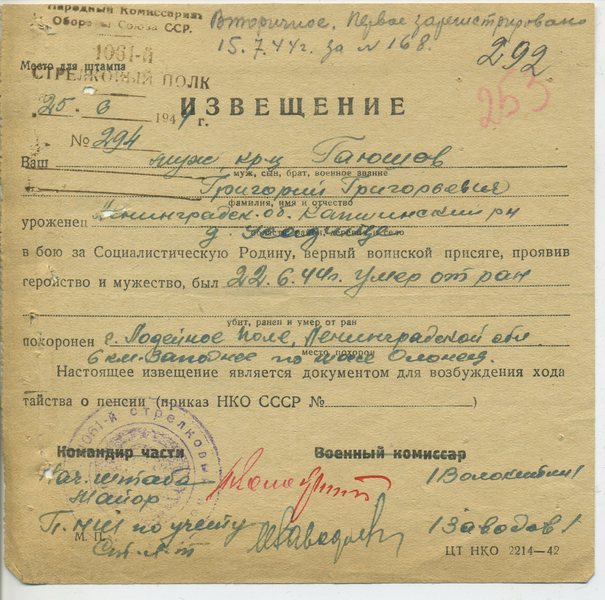 Народный Комиссариат
Обороны Союза ССР.
Вторичное. Первое зарегистрировано
15.7.44г. за № 168.
292
1061-й
Место для штампа
СТРЕЛКОВЫЙ ПОЛК
253
25. 6 1944 г.
ИЗВЕЩЕНИЕ
№ 294
Ваш муж кр-ц Гаюшов
муж, сын, брат, военное звание
Григорий Григорьевич
фамилия, имя и отчество
уроженец Ленинградск. об. Капшинский р-н
д.
в бою за Социалистическую Родину, верный воинской присяге, проявив
геройство и мужество, был 22.6.44г. умер от ран
убит, ранен и умер от ран
похоронен г. Лодейное Поле, Ленинградской обл.
место похорон
6 км. Западнее по шоссе Олонец.
Настоящее извещение является документом для возбуждения хода
тайства о пенсии (приказ НКО СССР № )
1061-й стрелковы
Командир части
Военный комиссар
Нач. штаба
Майор
/Волокитин/
П. НШ по учету
/Заводов/
М. П.
Ст. л-т
ЦТ НКО 2214—42